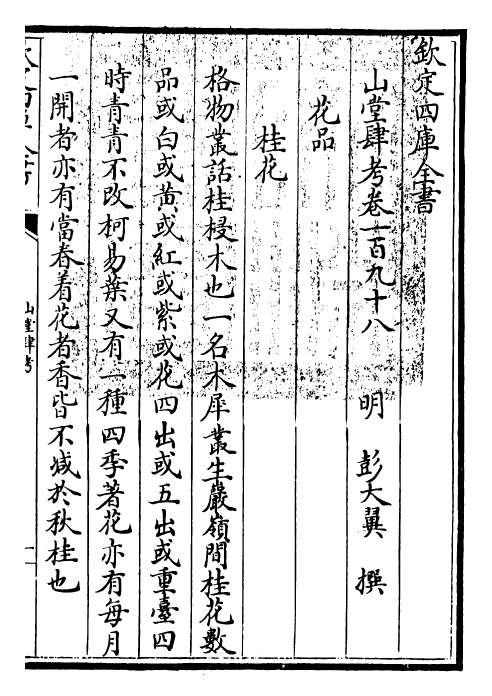 欽定四庫全書
山堂肆考卷一百九十八
明 彭大翼 撰
花品
桂花
格物叢話桂梫木也一名木犀叢生巖嶺間桂花數
品或白或黃或紅或紫或花四出或五出或重臺四
時青青不改柯易葉又有一種四季著花亦有每月
一開者亦有當春着花者香皆不減於秋桂也
山堂肆考